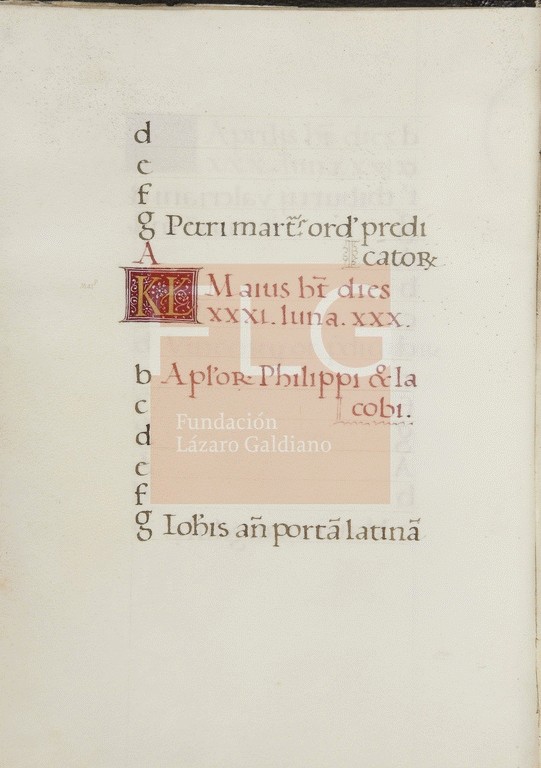 d
e
f
g Petri mart̃ʳ ord' predi
catoꝝ
A
KL Maius bt̃ dies
XXXI. luna. XXX.
b Apl'oꝝ Philippi & Ia
cobi.
c
d
e
f
g Ioh̃is añ portã latinã
FLG
Fundación
Lázaro Galdiano